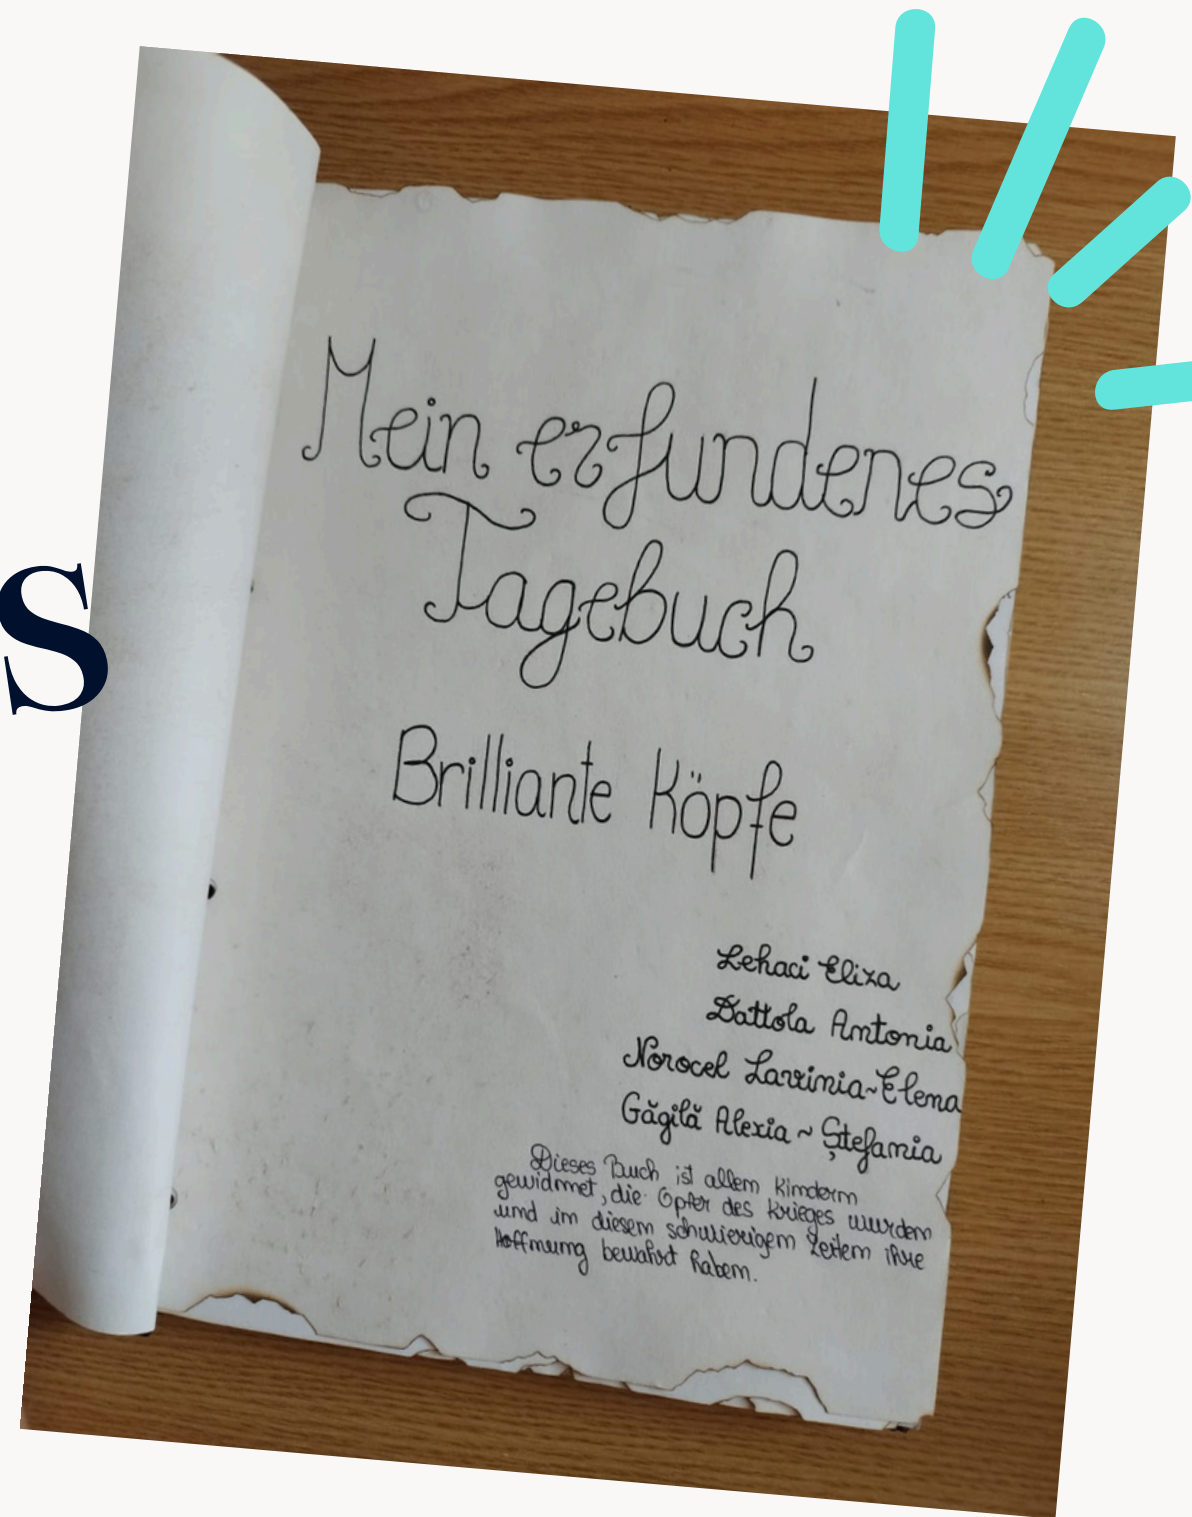 Mein erfundenes
Tagebuch
Brilliante Köpfe
Lehaci Eliza
Dattola Antonia
Norocel Lavinia~Elena
Găgilă Alexia ~ Ștefania
Dieses Buch ist allem Kindern
gewidmet, die Opfer des Krieges wurden
und in diesem schwierigem Zeiten ihre
Hoffnung bewahrt haben.
S